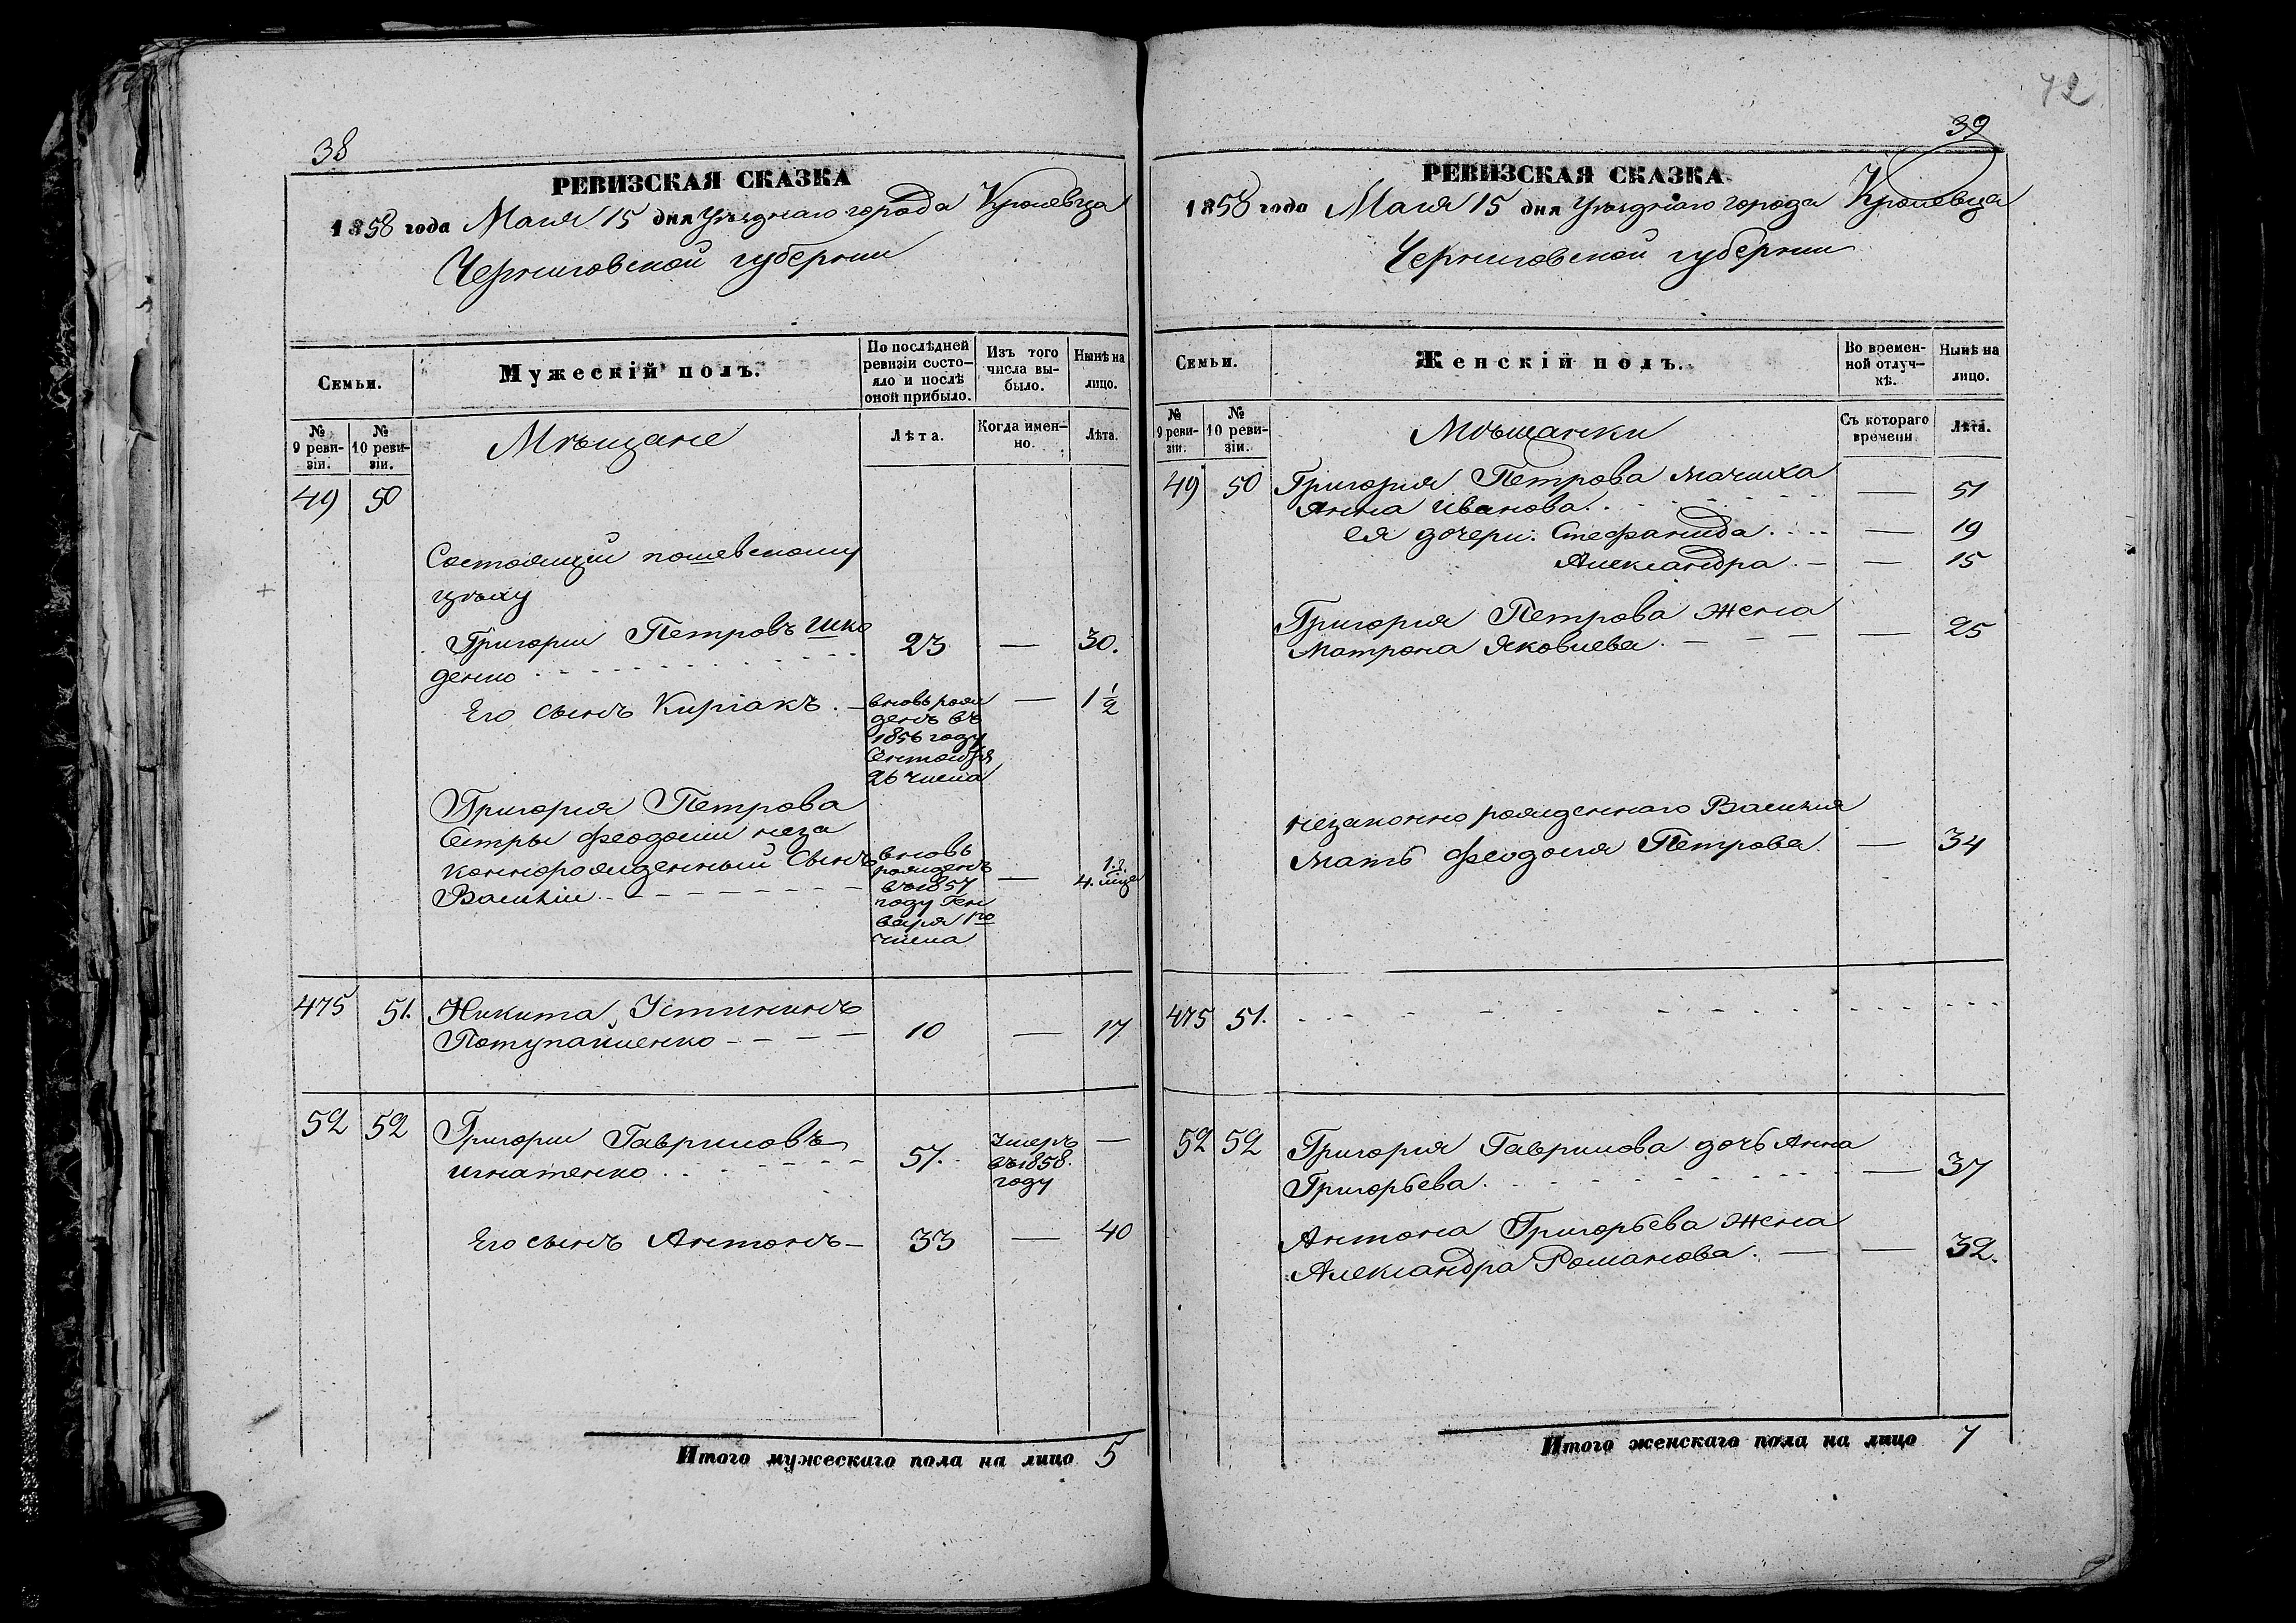 38
РЕВИЗСКАЯ СКАЗКА
1858 года Маія 15 дня Уѣзднаго города Кролевца
Черниговской губерніи
Семьи.
Мужескій полъ.
По послѣдней ревизіи состо-
яло и послѣ оной прибыло.
Изъ того числа вы-
было.
Нынѣ на лицо.
№ 9 реви-
зіи.
№ 10 реви-
зіи.
Мѣщане
Лѣта.
Когда имен-
но.
Лѣта.
49 50
Состоящій
цѣху
Григорій Петровъ Шко
денко 23 — 30.
Его сынъ Киріакъ. — вновь рож
денъ въ
1856 году
Сентября
26 числа — 1 1/2
Григорія Петрова
Сестры Феодосіи неза
коннорожденный Сынъ
Василій
вновь
рожденъ
въ 1857
году Ген
варя 1го
числа — 1.г.
4. мѣце
475 51. Никита Устининъ
Потупайленко 10 — 17
52 52 Григорій Гавриловъ
Игнатенко 57. Умеръ
въ 1858.
году —
Его сынъ Антонъ — 33 — 40
Итого мужескаго пола на лицо 5
72
39
РЕВИЗСКАЯ СКАЗКА
1858 года Маія 15 дня Уѣзднаго города Кролевца
Черниговской губерніи
Семьи.
Женскій полъ.
Во времен-
ной отлуч-
кѣ.
Нынѣ на
лицо.
№ 9 реви-
зіи.
№ 10 реви-
зіи.
Мѣщанки
Съ котораго
времени
Лѣта.
49 50 Григорія Петрова мачиха
Анна Иванова. — 51
ея дочери: Стефанида. — 19
Александра. — 15
Григорія Петрова жена
Матрона Яковлева. — 25
незаконно рожденнаго Василія
мать Феодосія Петрова. — 34
475 51.
52 52 Григорія Гаврилова дочь Анна
Григорьева. — 37
Антона Григорьева жена
Александра Романова. — 32.
Итого женскаго пола на лицо 7